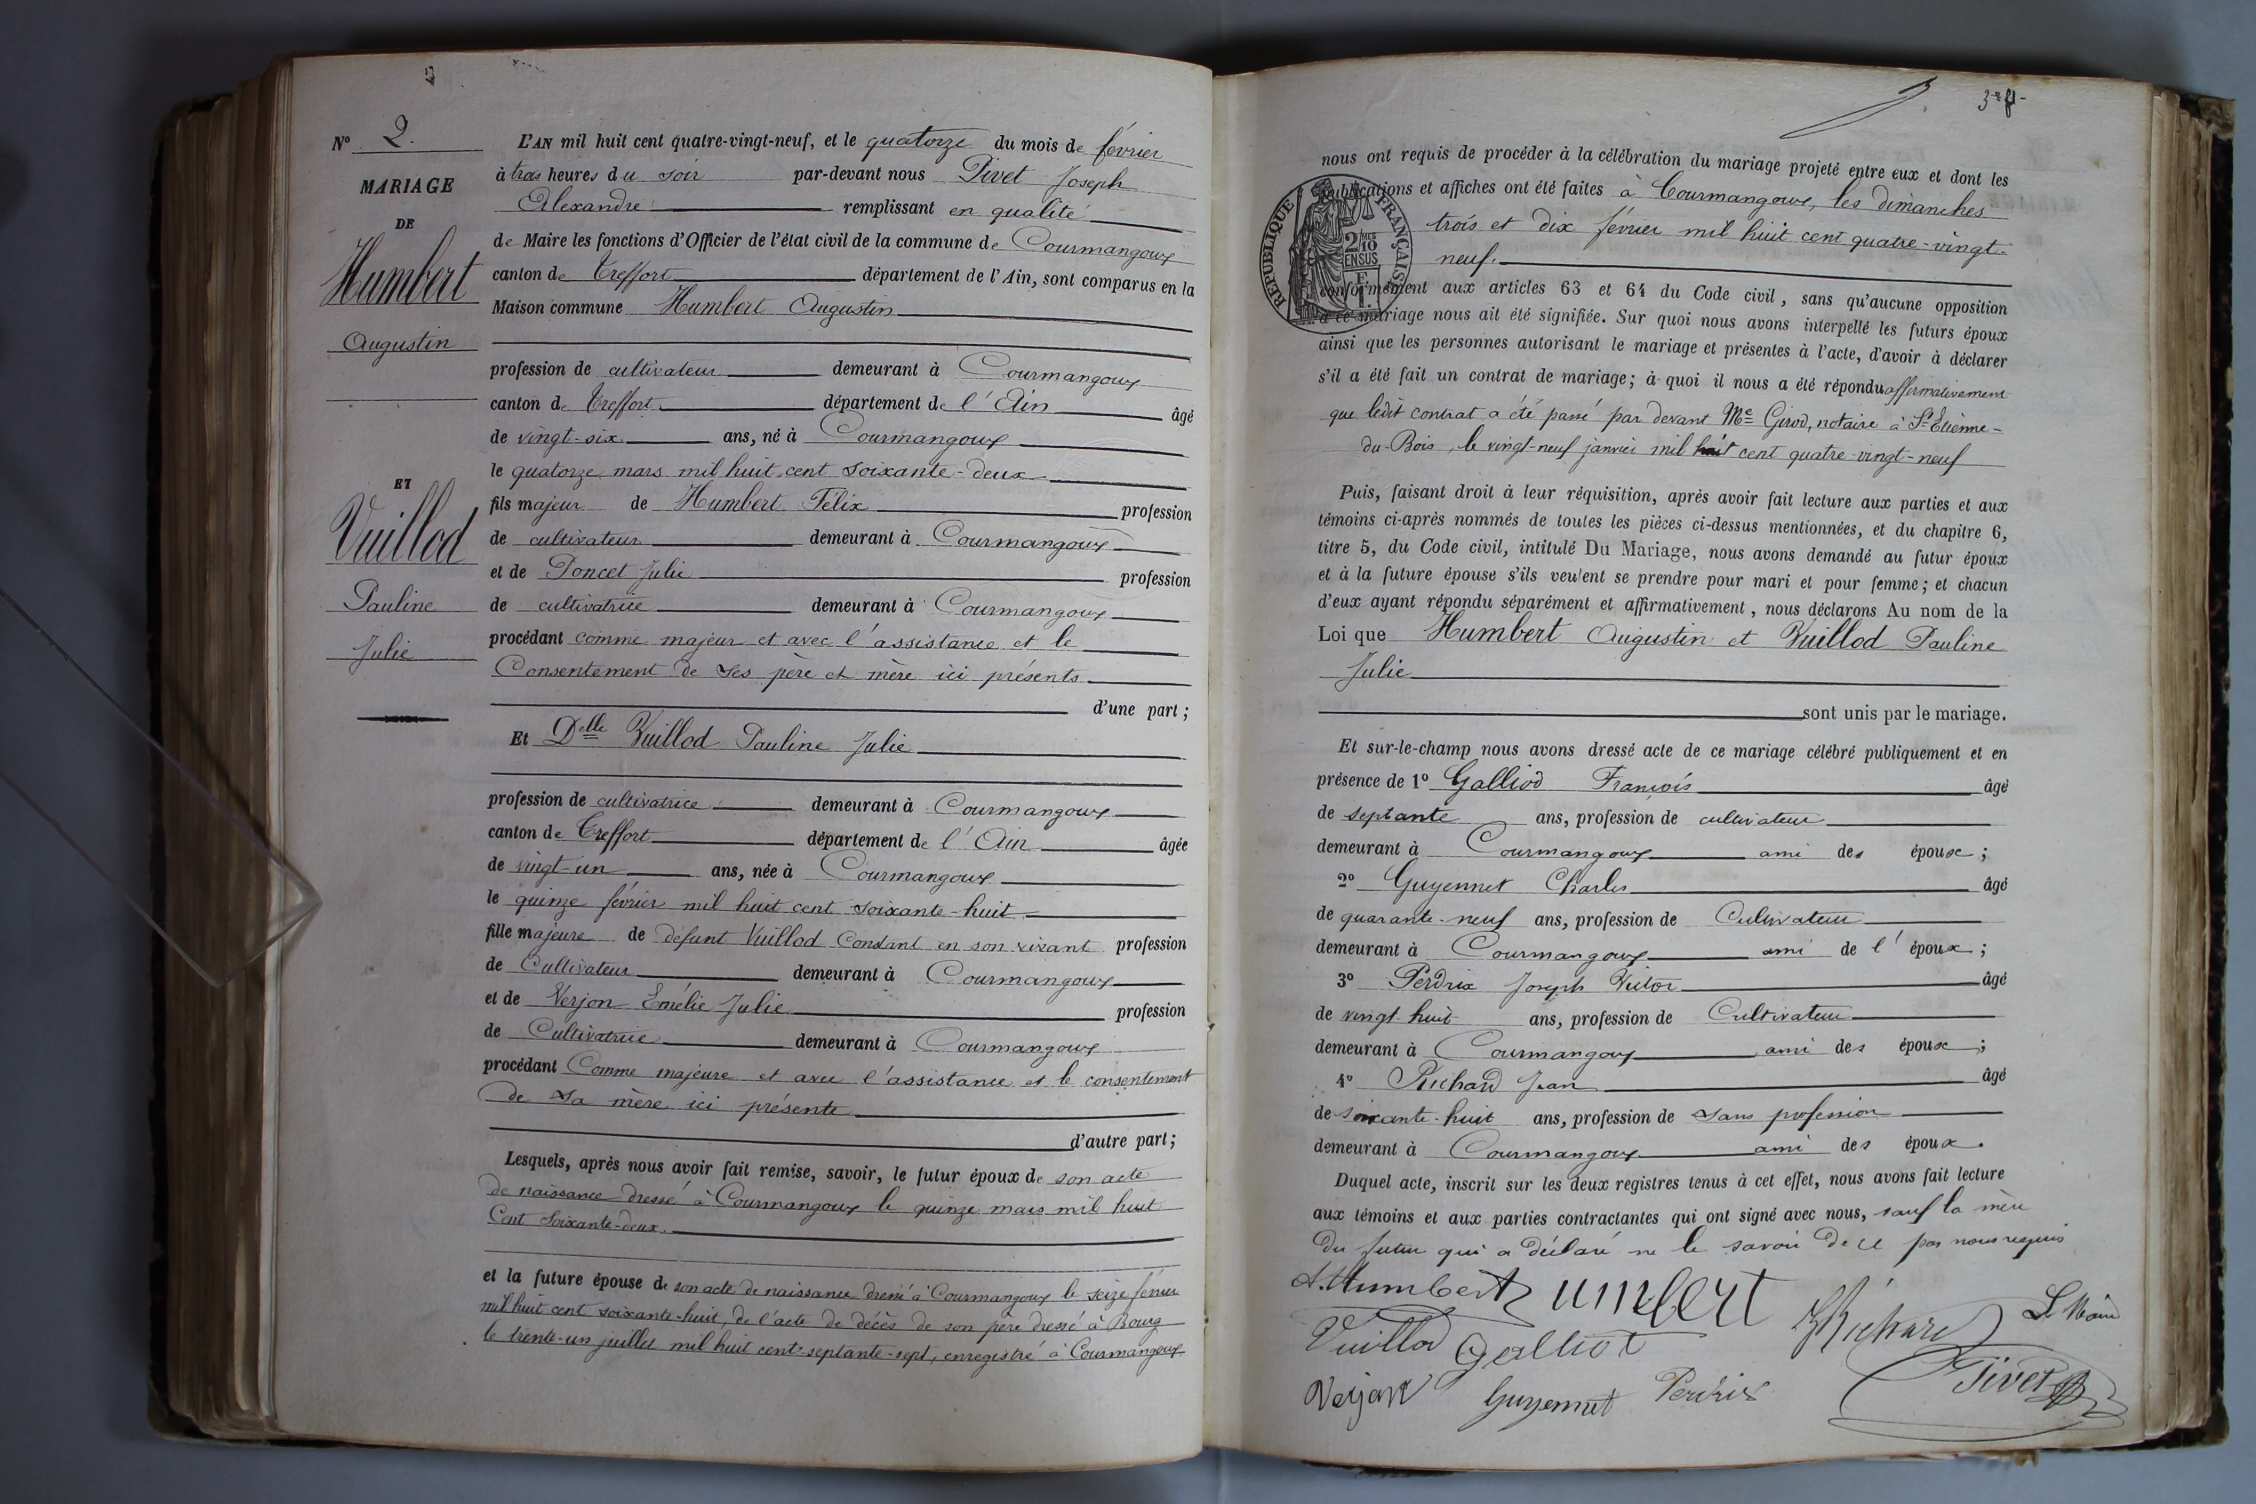 No 2.
MARIAGE
DE
Humbert
Augustin
ET
Vuillod
Pauline
Julie
L'AN mil huit cent quatre-vingt-neuf, et le quatorze du mois de février
à trois heures du soir par-devant nous Pivet Joseph
Alexandre remplissant en qualité
de Maire les fonctions d'Officier de l'état civil de la commune de Courmangoux
canton de Treffort département de l'Ain, sont comparus en la
Maison commune Humbert Augustin
profession de cultivateur demeurant à Courmangoux
canton de Treffort département de l'Ain âgé
de vingt-six ans, né à Courmangoux
le quatorze mars mil huit cent soixante-deux
fils majeur de Humbert Félix profession
de cultivateur demeurant à Courmangoux
et de Poncet Julie profession
de cultivatrice demeurant à Courmangoux
procédant comme majeur et avec l'assistance et le
Consentement de ses père et mère ici présents
d'une part ;
Et Delle Vuillod Pauline Julie
profession de cultivatrice demeurant à Courmangoux
canton de Treffort département de l'Ain âgée
de vingt-un ans, née à Courmangoux
le quinze février mil huit cent soixante-huit
fille majeure de défunt Vuillod Constant en son vivant profession
de Cultivateur demeurant à Courmangoux
et de Verjon Emélie Julie profession
de Cultivatrice demeurant à Courmangoux
procédant Comme majeure et avec l'assistance et le consentement
de sa mère ici présente
d'autre part ;
Lesquels, après nous avoir fait remise, savoir, le futur époux de son acte
de naissance dressé à Courmangoux le quinze mars mil huit
Cent soixante-deux.
et la future épouse de son acte de naissance dressé à Courmangoux le seize février
mil huit cent soixante-huit, de l'acte de décès de son père dressé à Bourg
le trente-un juillet mil huit cent septante-sept, enregistré à Courmangoux
3
nous ont requis de procéder à la célébration du mariage projeté entre eux et dont les
publications et affiches ont été faites à Courmangoux, les dimanches
trois et dix février mil huit cent quatre-vingt-
neuf.
RÉPUBLIQUE FRANÇAISE
2/10
EN SUS
conformément aux articles 63 et 64 du Code civil, sans qu'aucune opposition
à ce mariage nous ait été signifiée. Sur quoi nous avons interpellé les futurs époux
ainsi que les personnes autorisant le mariage et présentes à l'acte, d'avoir à déclarer
s'il a été fait un contrat de mariage; à quoi il nous a été répondu affirmativement
que ledit contrat a été passé par devant Me Girod, notaire à St Etienne-
du-Bois, le vingt-neuf janvier mil huit cent quatre-vingt-neuf
Puis, faisant droit à leur réquisition, après avoir fait lecture aux parties et aux
témoins ci-après nommés de toutes les pièces ci-dessus mentionnées, et du chapitre 6,
titre 5, du Code civil, intitulé Du Mariage, nous avons demandé au futur époux
et à la future épouse s'ils veulent se prendre pour mari et pour femme; et chacun
d'eux ayant répondu séparément et affirmativement, nous déclarons Au nom de la
Loi que Humbert Augustin et Vuillod Pauline
Julie
sont unis par le mariage.
Et sur-le-champ nous avons dressé acte de ce mariage célébré publiquement et en
présence de 1° Galliod François âgé
de septante ans, profession de cultivateur
demeurant à Courmangoux ami des époux ;
2° Guyennet Charles âgé
de quarante-neuf ans, profession de Cultivateur
demeurant à Courmangoux ami de l'époux ;
3° Perdrix Joseph Victor âgé
de vingt huit ans, profession de Cultivateur
demeurant à Courmangoux ami des époux ;
4° Richard Jean âgé
de soixante-huit ans, profession de sans profession
demeurant à Courmangoux ami des époux.
Duquel acte, inscrit sur les deux registres tenus à cet effet, nous avons fait lecture
aux témoins et aux parties contractantes qui ont signé avec nous, sauf la mère
du futur qui a déclaré ne le savoir de ce par nous requis
A. Humbert Humbert
Vuillod Galliot Richard Le Maire
Verjon Guyennet Perdrix Pivet